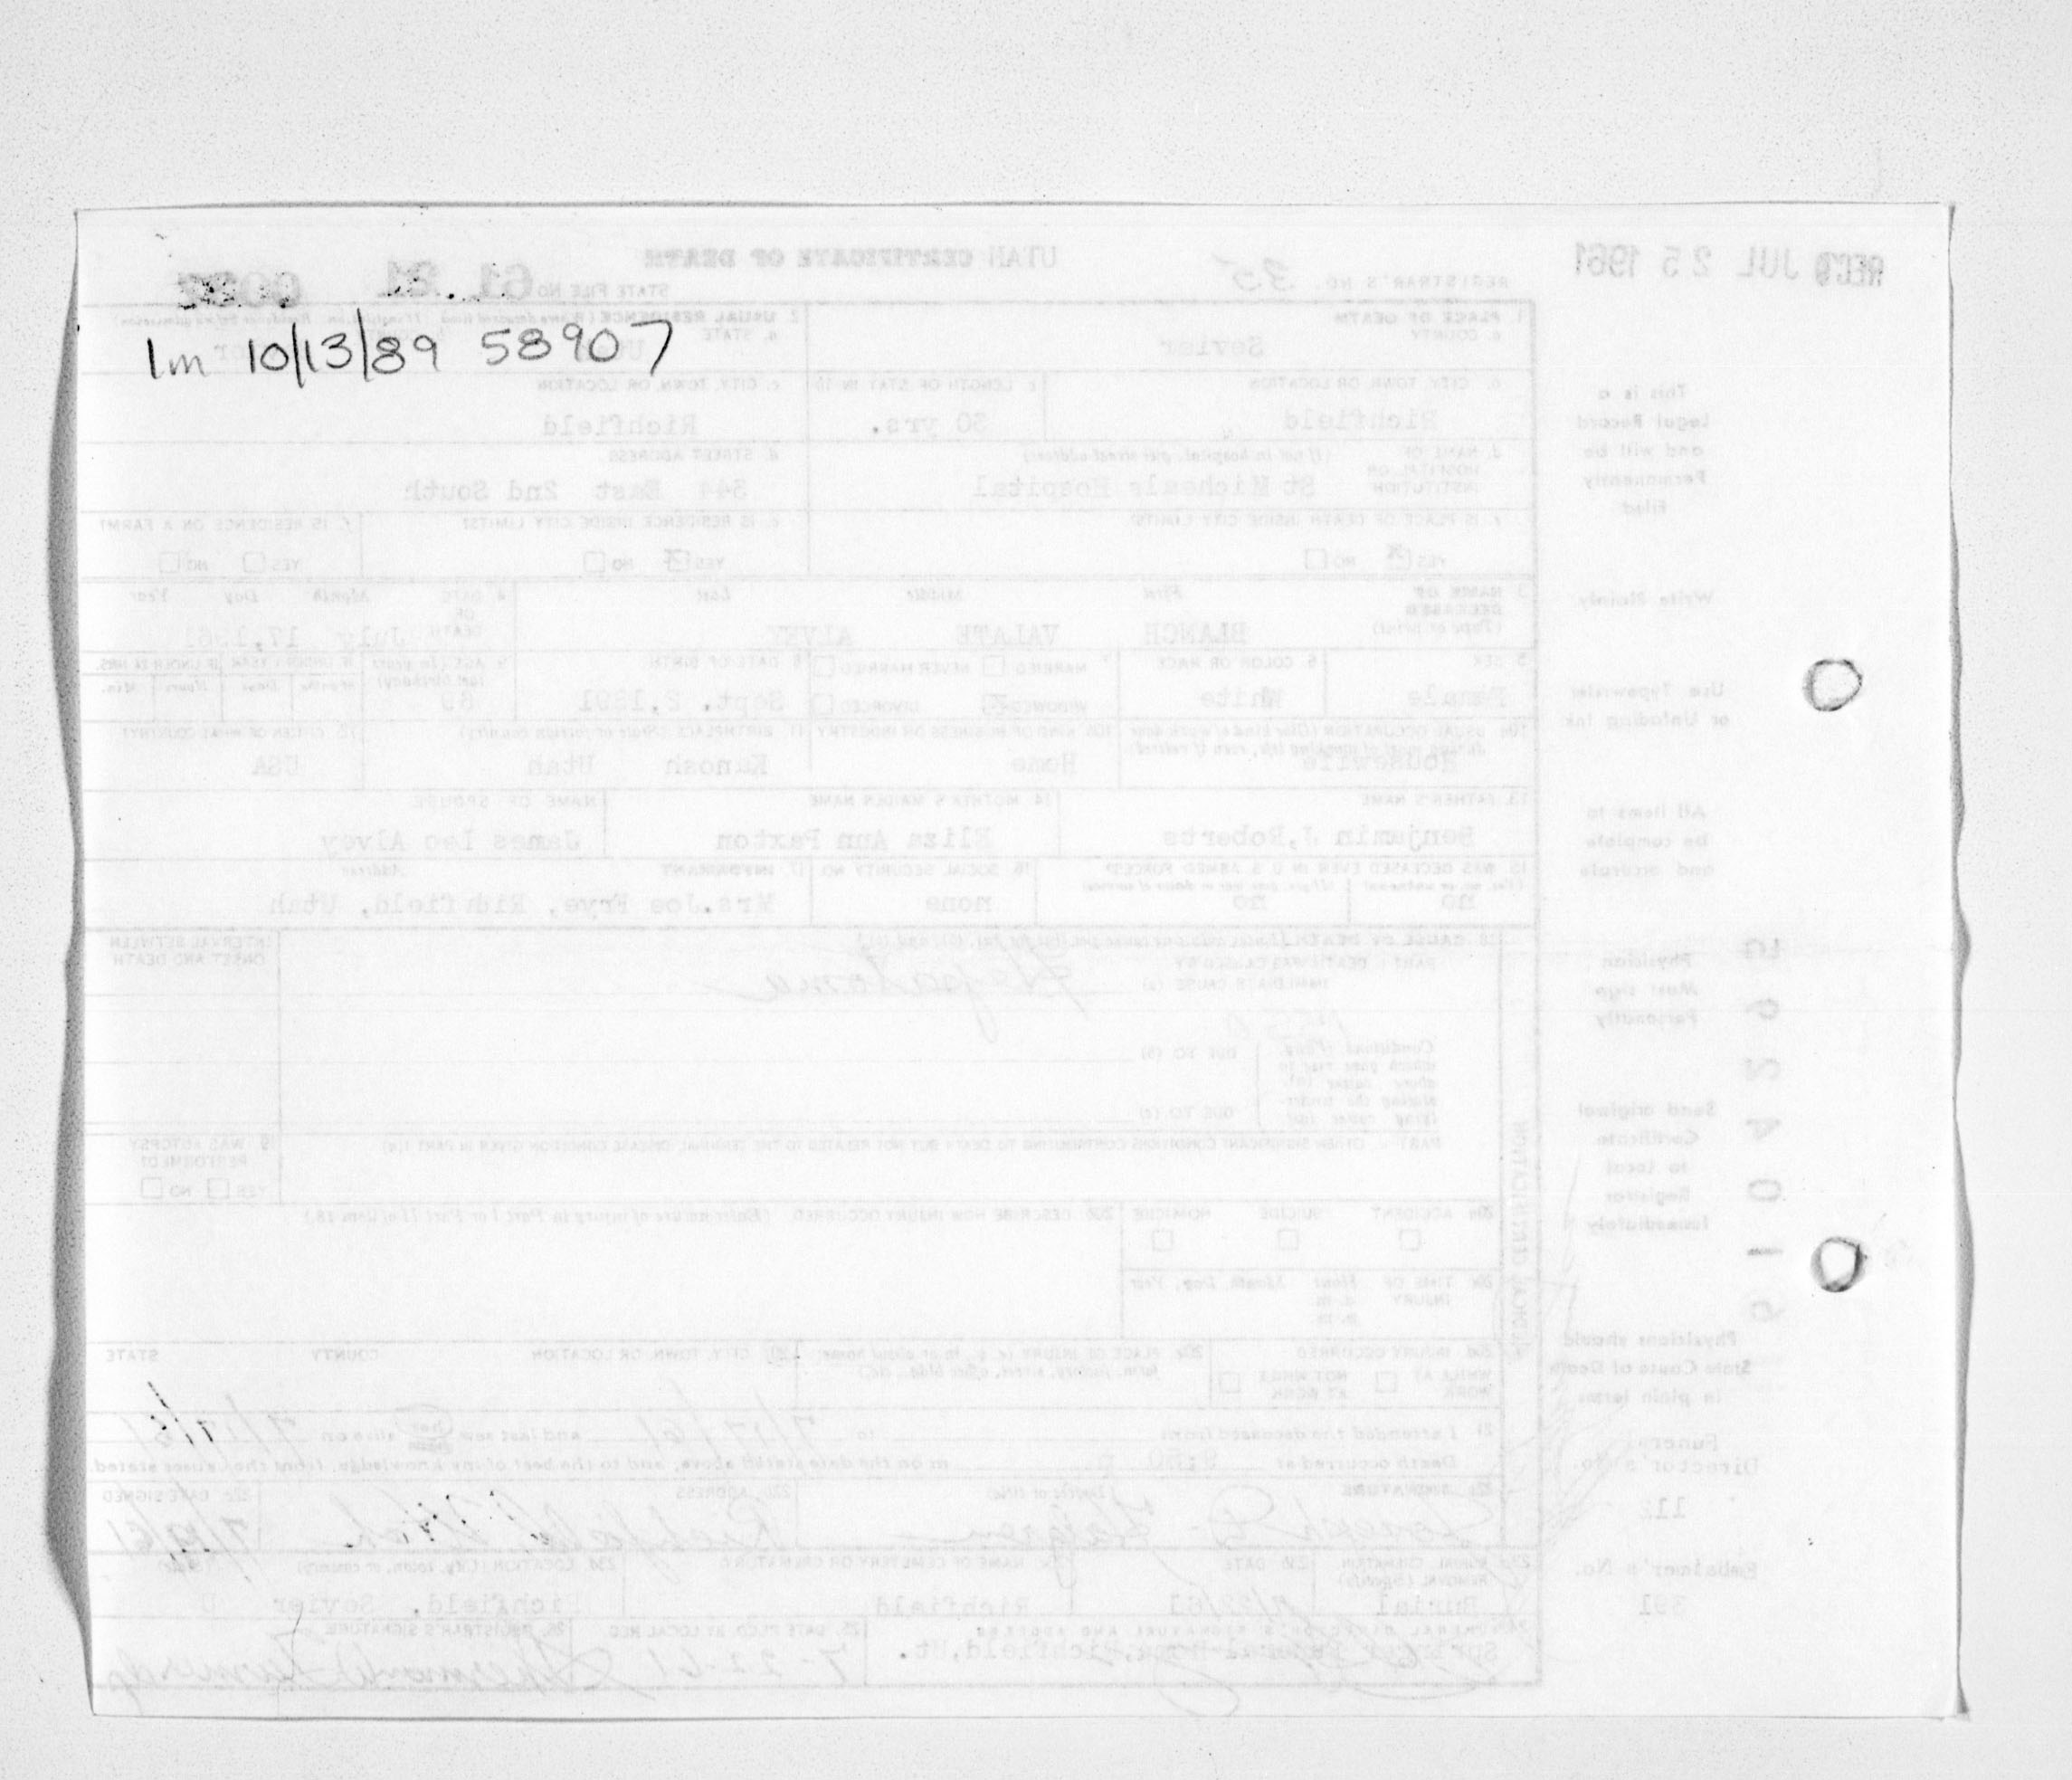 lm 10/13/89 58907
REC'D JUL 25 1961
REGISTRAR'S NO. 35
UTAH CERTIFICATE OF DEATH
STATE FILE NO. 61 21
This is a
Legal Record
and will be
Permanently
Filed
Write Plainly
Use Typewriter
or Unfading Ink
All items to
be complete
and accurate
Physician
Must sign
Personally
Send original
Certificate
to local
Registrar
Immediately
Physicians should
State Cause of Death
in plain terms
Funeral
Director's No.
Embalmer's No.
391
1. PLACE OF DEATH
a. COUNTY
Sevier
2. USUAL RESIDENCE
a. STATE
Utah
b. CITY, TOWN, OR LOCATION
Richfield
c. LENGTH OF STAY IN 1b
30 yrs.
c. CITY, TOWN, OR LOCATION
Richfield
d. NAME OF HOSPITAL OR INSTITUTION (If not in hospital, give street address)
St Micheals Hospital
d. STREET ADDRESS
344 East 2nd South
e. IS PLACE OF DEATH INSIDE CITY LIMITS?
YES NO
e. IS RESIDENCE INSIDE CITY LIMITS?
YES NO
f. IS RESIDENCE ON A FARM?
YES NO
3. NAME OF DECEASED (Type or print)
First Middle Last
BLANCH VALATE ALVEY
4. DATE OF DEATH
Month Day Year
July 17, 1961
5. SEX
Female
6. COLOR OR RACE
White
7. MARRIED NEVER MARRIED
WIDOWED DIVORCED
8. DATE OF BIRTH
Sept. 2, 1891
9. AGE (In years last birthday)
69
IF UNDER 1 YEAR IF UNDER 24 HRS.
Months Days Hours Min.
10a. USUAL OCCUPATION (Give kind of work done during most of working life, even if retired)
Housewife
10b. KIND OF BUSINESS OR INDUSTRY
Home
11. BIRTHPLACE (State or foreign country)
Kanosh Utah
12. CITIZEN OF WHAT COUNTRY?
USA
13. FATHER'S NAME
Benjamin J, Roberts
14. MOTHER'S MAIDEN NAME
Eliza Ann Paxton
NAME OF SPOUSE
James Leo Alvey
15. WAS DECEASED EVER IN U. S. ARMED FORCES?
no no
16. SOCIAL SECURITY NO.
none
17. INFORMANT Address
Mrs. Joe Frye, Richfield, Utah
18. CAUSE OF DEATH
PART I. DEATH WAS CAUSED BY
IMMEDIATE CAUSE (a)
INTERVAL BETWEEN
ONSET AND DEATH
DUE TO (b)
DUE TO (c)
PART II. OTHER SIGNIFICANT CONDITIONS CONTRIBUTING TO DEATH BUT NOT RELATED TO THE TERMINAL DISEASE CONDITION GIVEN IN PART I(a)
19. WAS AUTOPSY
PERFORMED?
YES NO
20a. ACCIDENT SUICIDE HOMICIDE
20b. DESCRIBE HOW INJURY OCCURRED. (Enter nature of injury in Part I or Part II of item 18.)
20c. TIME OF INJURY
Hour Month, Day, Year
a. m.
p. m.
20d. INJURY OCCURRED
WHILE AT WORK NOT WHILE AT WORK
20e. PLACE OF INJURY (e. g., in or about home, farm, factory, street, office bldg., etc.)
20f. CITY, TOWN, OR LOCATION COUNTY STATE
21. I attended the deceased from to 7/17/61 and last saw her alive on 7/17/61
Death occurred at m on the date stated above, and to the best of my knowledge, from the causes stated.
22a. SIGNATURE (Degree or title)
22b. ADDRESS
Richfield, Utah
22c. DATE SIGNED
23a. BURIAL, CREMATION, REMOVAL (Specify)
Burial
23b. DATE
23c. NAME OF CEMETERY OR CREMATORY
Richfield
23d. LOCATION (City, town, or county) (State)
Richfield, Sevier U
24. FUNERAL DIRECTOR'S SIGNATURE AND ADDRESS
Springer Funeral Home, Richfield, Ut.
25. DATE REC'D BY LOCAL REG.
7-22-61
26. REGISTRAR'S SIGNATURE